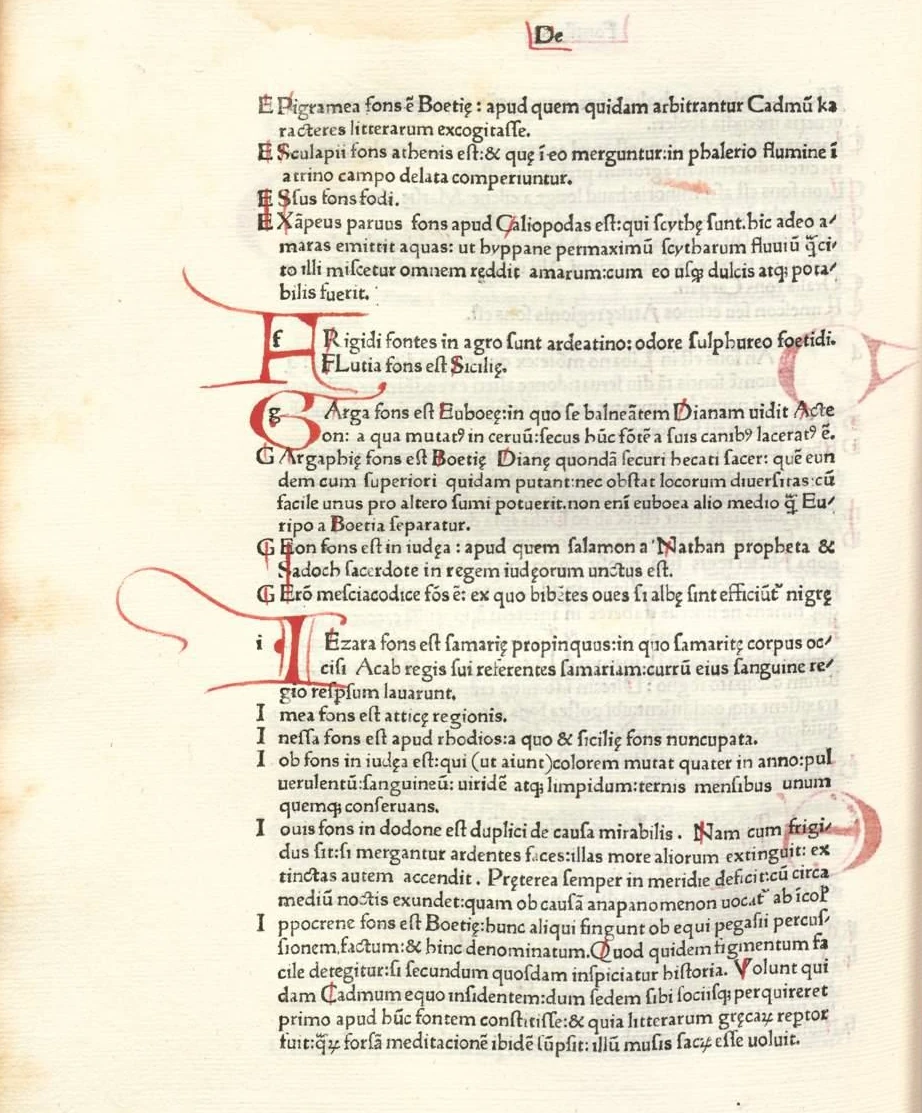 De
E Pigramea fons ē Boetię : apud quem quidam arbitrantur Cadmū ka
racteres litterarum excogitaſſe.
E Sculapii fons athenis eſt:& quę ī eo merguntur:in phalerio flumine ī
atrino campo delata comperiuntur.
E Sſus fons fodi.
E Xāpeus paruus fons apud Caliopodas eſt:qui ſcythę ſunt.hic adeo a/
maras emittit aquas: ut hyppane permaximū ſcytharum fluuiū q̄ci/
to illi miſcetur omnem ręddit amarum:cum eo uſq; dulcis atq; pota/
bilis fuerit.
f F Rigidi fontes in agro ſunt ardeatino: odore ſulphureo foetidi.
FLutia fons eſt Sicilię.
g G Arga fons eſt Euboeę:in quo ſe balneātem Dianam uidit Acte
on: a qua mutatꝰ in ceruū:ſecus hūc fōtē a ſuis canibꝰ laceratꝰ ē.
G Argaphię fons eſt Boetię Dianę quondā ſecuri hecati ſacer: quē eun
dem cum ſuperiori quidam putant:nec obſtat locorum diuerſitas:cū
facile unus pro altero ſumi potuerit.non enī euboea alio medio q̄ Eu/
ripo a Boetia ſeparatur.
G Eon fons eſt in iudęa : apud quem ſalamon a Nathan propheta &
Sadoch ſacerdote in regem iudęorum unctus eſt.
G Erō meſciacodice fōs ē: ex quo bibētes oues ſi albę ſint efficiūt᷑ nigrę
i I Ezara fons eſt ſamarię propinquus:in quo ſamaritę corpus oc/
ciſi Acab regis ſui referentes ſamariam:currū eius ſanguine re/
gio reſpſum lauarunt.
I mea fons eſt atticę regionis.
I neſſa fons eſt apud rhodios:a quo & ſicilię fons nuncupata.
I ob fons in iudęa eſt:qui (ut aiunt)colorem mutat quater in anno:pul
uerulentū:ſanguineū: uiridē atq; limpidum:ternis menſibus unum
quemq; conſeruans.
I ouis fons in dodone eſt duplici de cauſa mirabilis . Nam cum frigi/
dus ſit:ſi mergantur ardentes faces:illas more aliorum extinguit: ex
tinctas autem accendit . Pręterea ſemper in meridie deficit:cū circa
mediū noctis exundet:quam ob cauſā anapanomenon uocāt᷑ ab īcoꝉ
I ppocrene fons eſt Boetię:hunc aliqui fingunt ob equi pegaſii percuſ/
ſionem.factum:& hinc denominatum.Quod quidem figmentum fa
cile detegitur:ſi ſecundum quoſdam inſpiciatur hiſtoria. Volunt qui
dam Cadmum equo inſidentem:dum ſedem ſibi ſociiſq; perquireret
primo apud hūc fontem conſtitiſſe:& quia litterarum gręcaꝝ reptor
fuit:q̄ꝝ forſā meditacionē ibidē ſūpſit: illū muſis ſacꝝ eſſe uoluit.